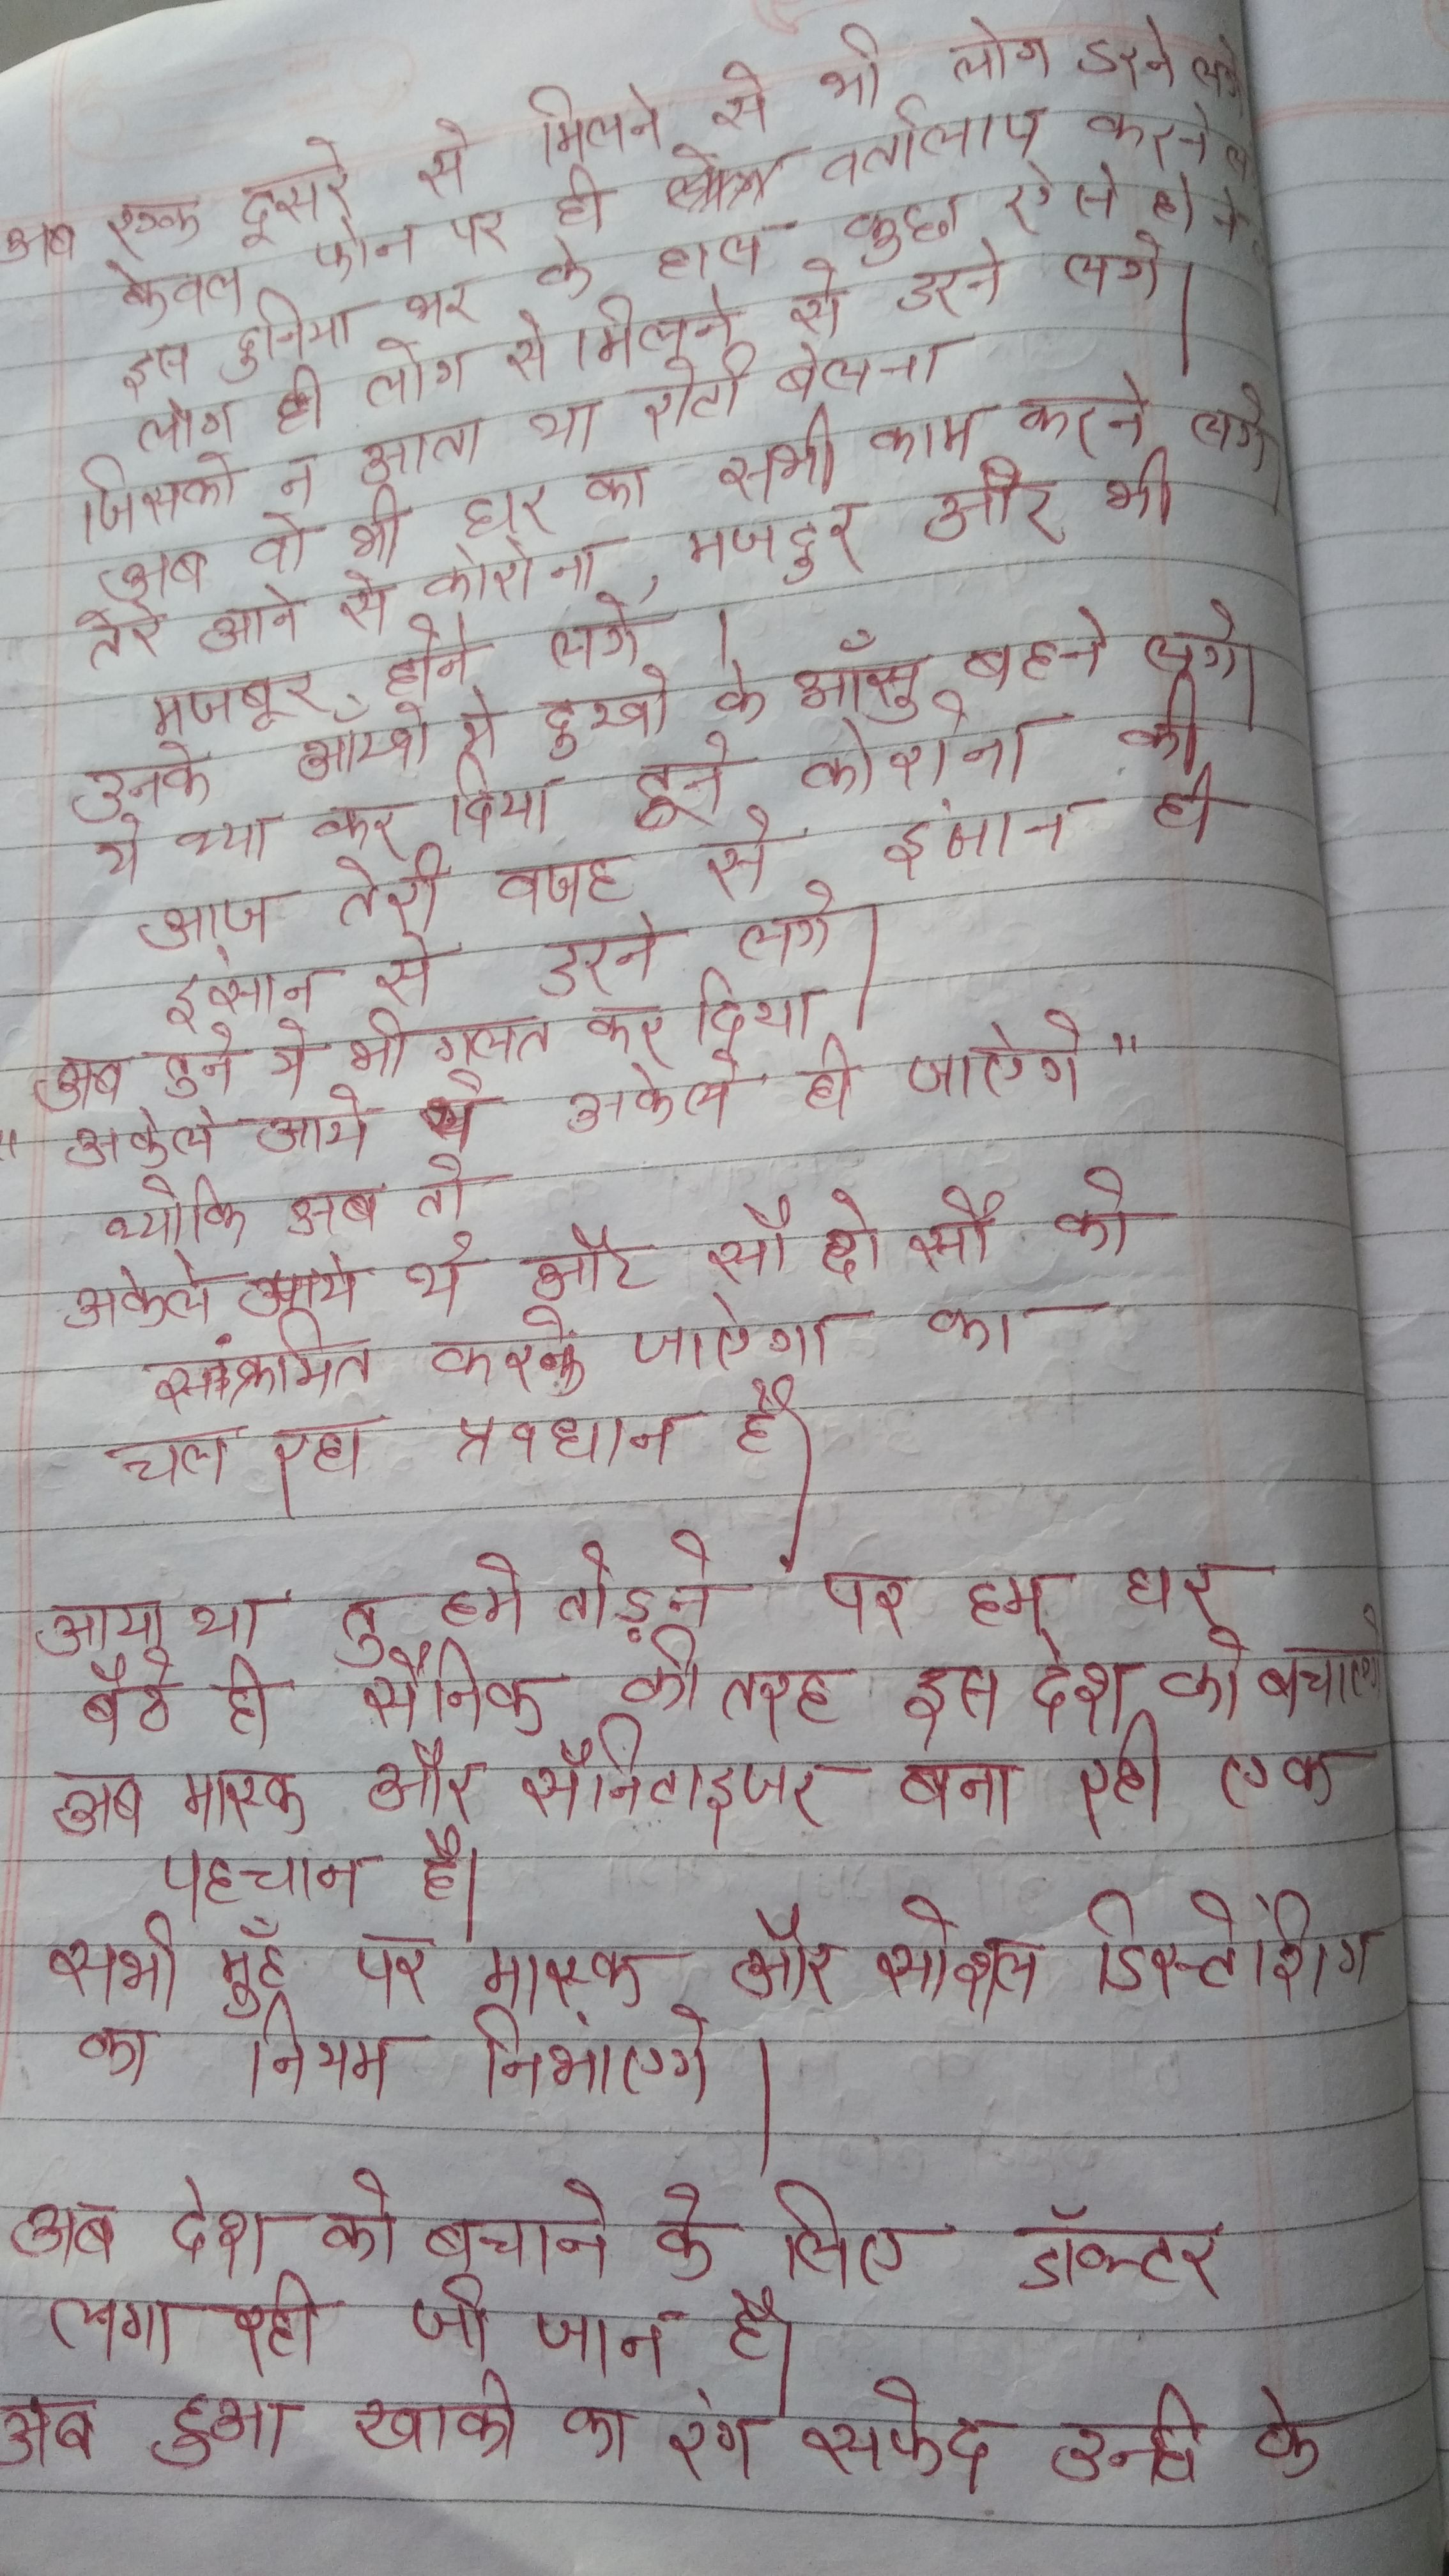 अब एक दूसरे से मिलने से भी लोग डरने लगे
केवल फोन पर ही वर्तालाप करने
इस दुनिया भर के हाल कुछ ऐसे होने
लोग ही लोग से मिलने से डरने लगे।
जिसको न आता था रोटी बेलना
अब वो भी घर का सभी काम करने लगे
तेरे आने से कोरोना, मजदुर और भी
मजबूर होने लगे।
उनके आँखो से दुखो के आँसु बहने लगे।
ये क्या कर दिया तूने कोरोना की
आज तेरी वजह से इंसान ही
इंसान से डरने लगे।
अब तुने ये भी गलत कर दिया।
" अकेले आये थे अकेले ही जाऐगे "
क्योकि अब तो
अकेले आये थे और सौ दो सौ को
संक्रामित करके जाऐगा का
चल रहा प्रवधान है।
आया था तु हमे तोड़ने पर हम घर
बैठे ही सैनिक की तरह इस देश को बचाएगे
अब मास्क और सैनिटाइजर बना रही एक
पहचान है।
सभी मुँह पर मास्क और सोशल डिस्टेंशिग
का नियम निभांएगे।
अब देश को बचाने के लिए डॉक्टर
लगा रही जी जान है।
अब हुआ खाकी का रंग सफेद उन्ही के